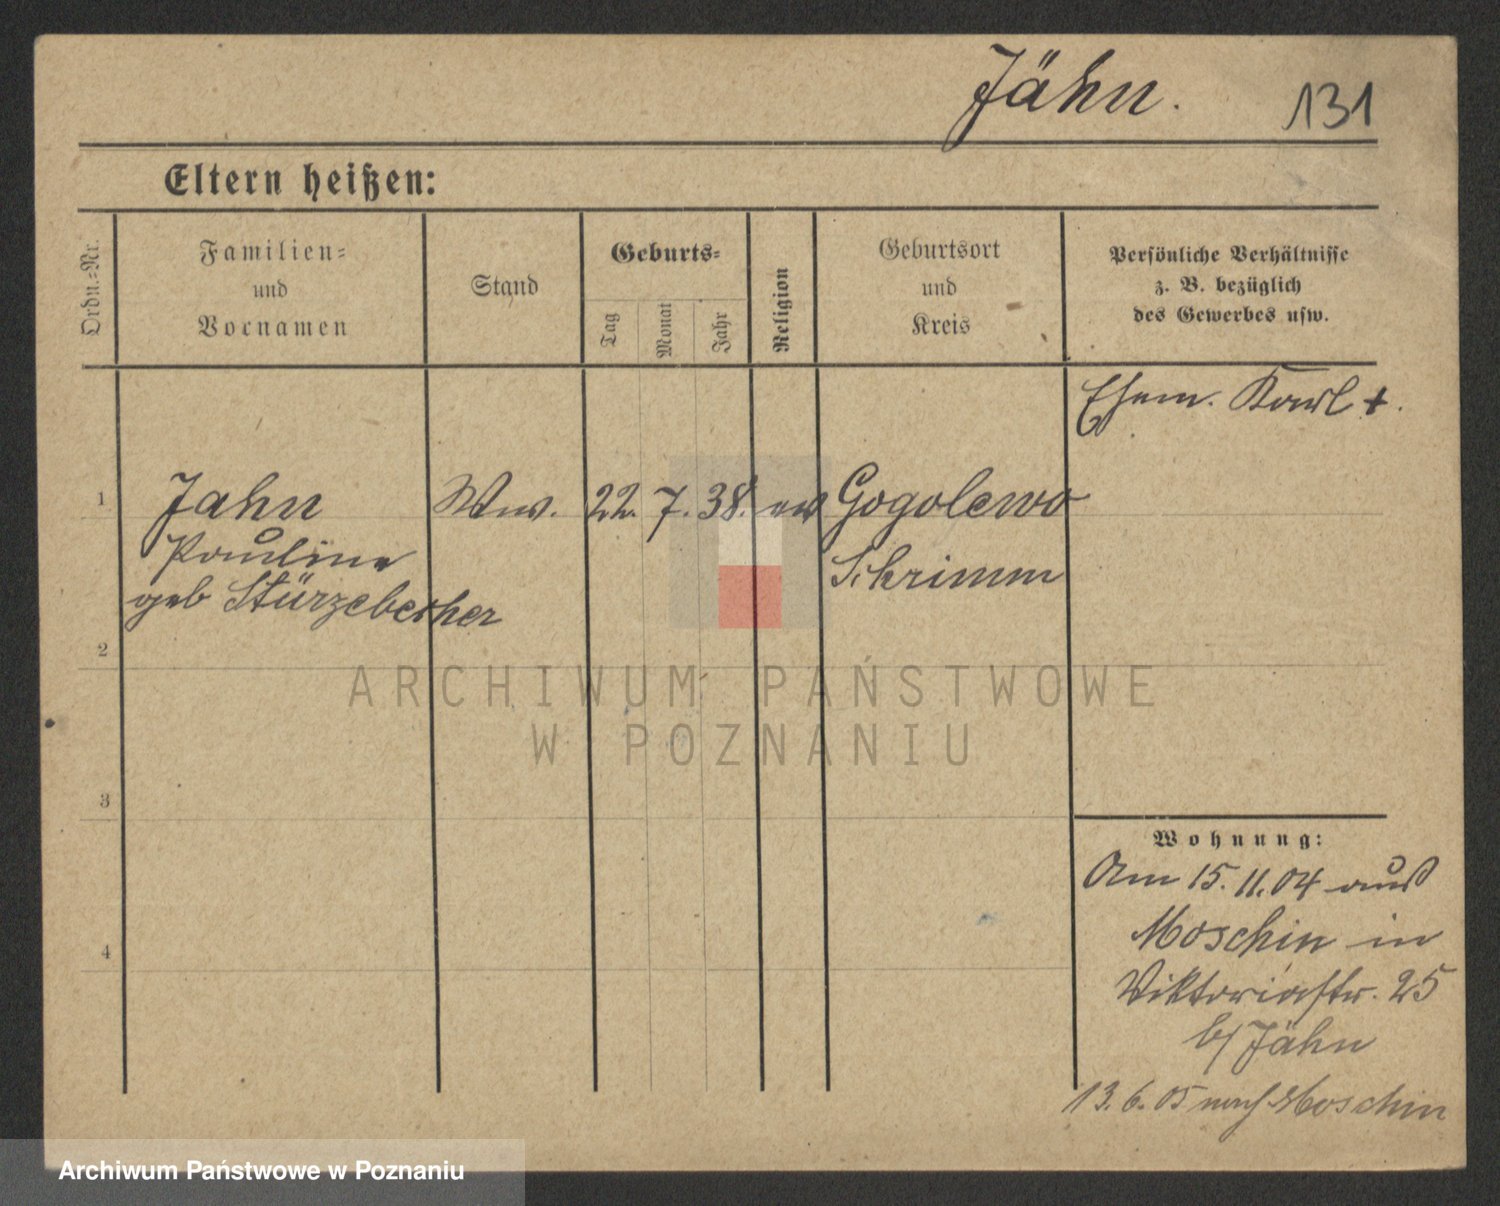 Jähn. 131
Eltern heißen:
Ordn.=Nr.
Familien=
und
Vornamen
Stand
Geburts=
Tag
Monat
Jahr
Religion
Geburtsort
und
Kreis
Persönliche Verhältnisse
z. B. bezüglich
des Gewerbes usw.
Ehem. Karl +.
1 Jahn Ww. 22. 7. 38. ev Gogolewo
Pauline Schrimm
geb Stürzebecher
2
3
4
Wohnung:
Am 15. 11. 04 aus
Moschin in
Viktoriastr. 25
b/ Jähn
13. 6. 05 nach Moschin
ARCHIWUM PAŃSTWOWE
W POZNANIU
Archiwum Państwowe w Poznaniu